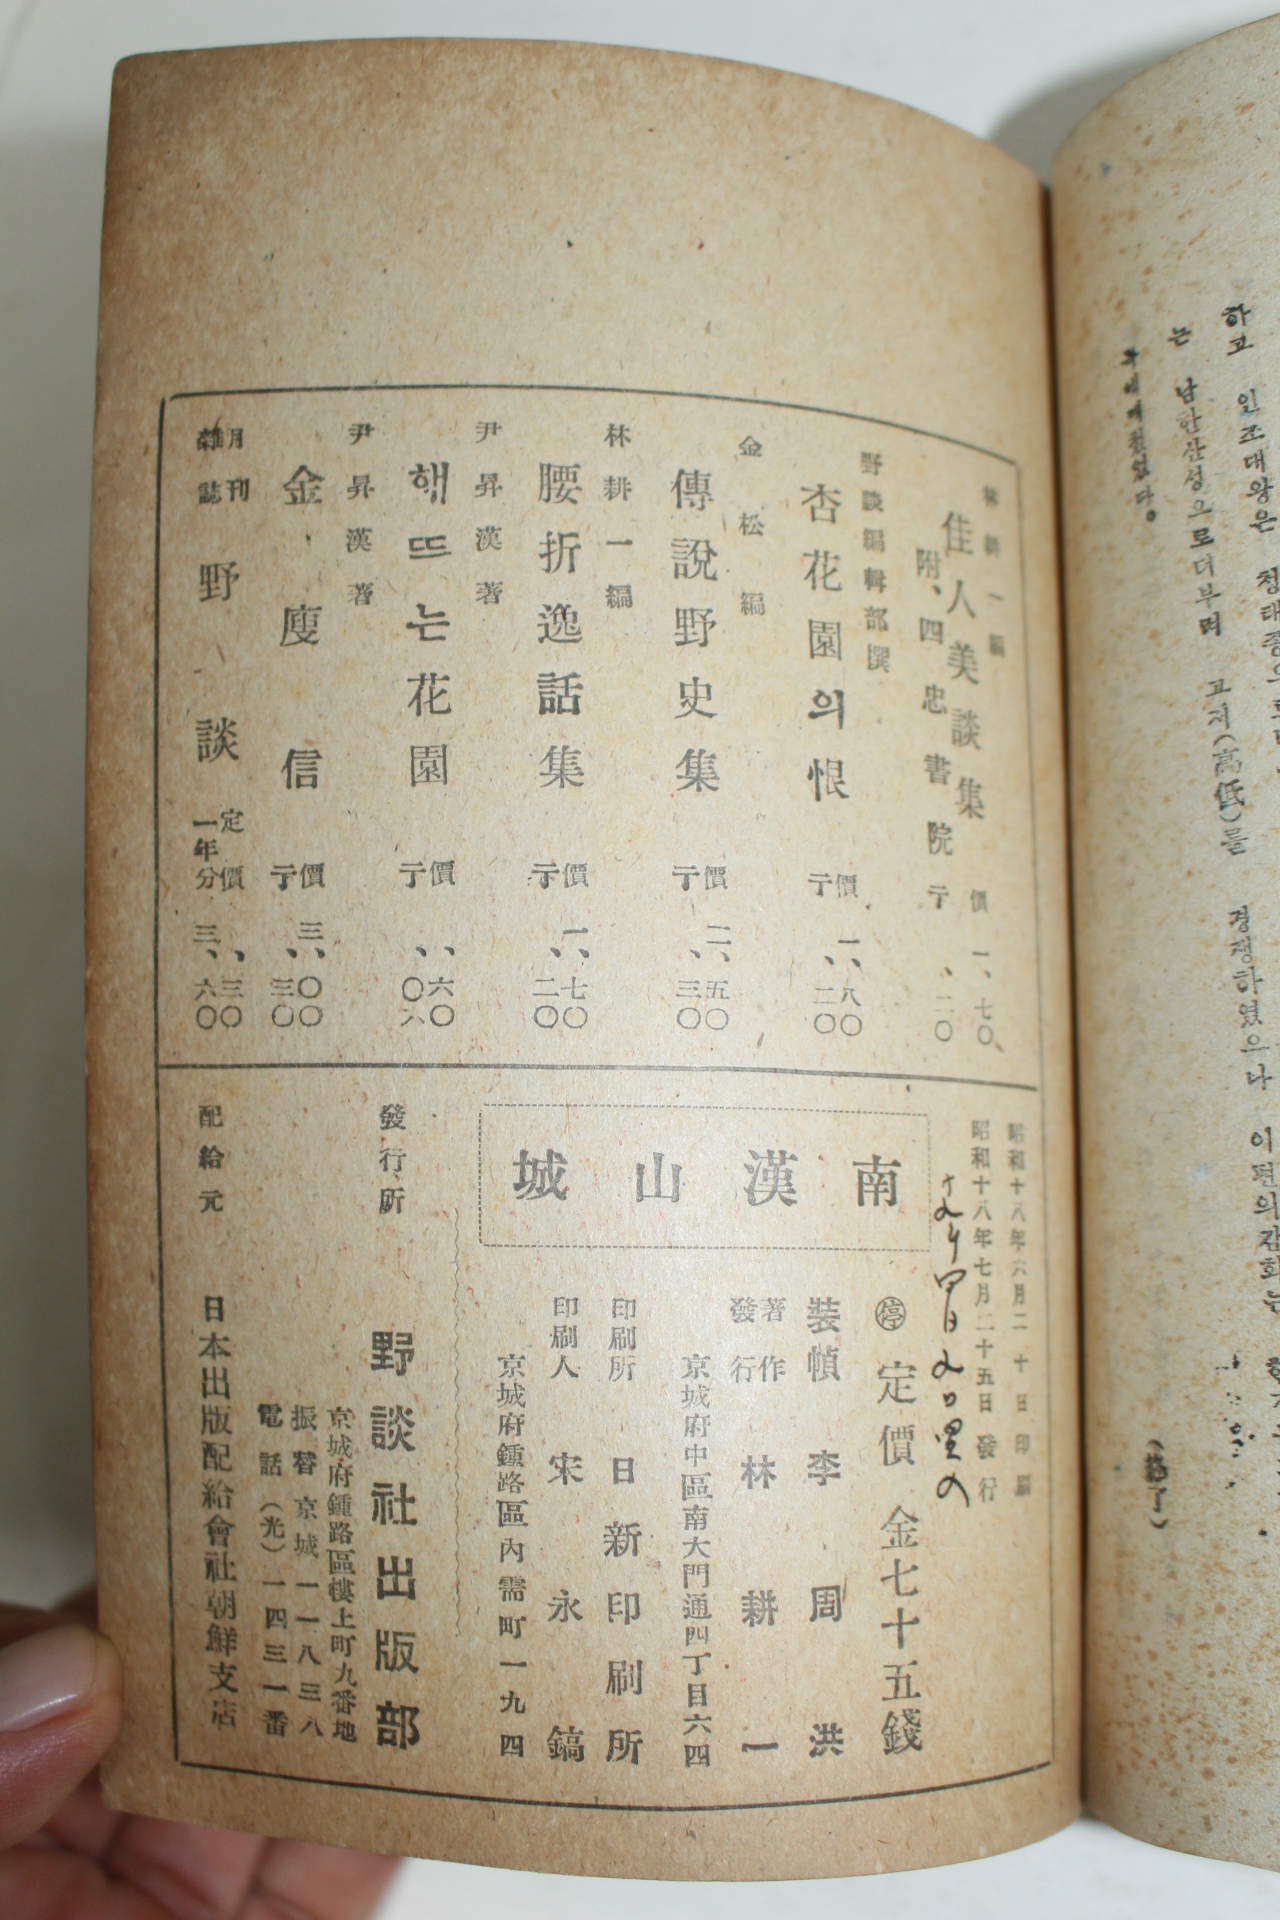 하고 인조대왕은 청태종으로더
는 남한산성으로더부며 고저(高低)를 경쟁하였으나 이편의감화는
(終了)
林耕一編
佳人美談集
附、四忠書院
價 一、七〇
亍 、二〇
野談編輯部撰
杏花園의恨
價 一、八〇
亍 、二〇
金松編
傳說野史集
價 二、五〇
亍 、三〇
林耕一編
腰折逸話集
價 一、七〇
亍 、二〇
尹昇漢著
해뜨는花園
價 、六〇
亍 、〇六
尹昇漢著
金庾信
價 三、〇〇
亍 、三〇
月刊
雜誌
野談
定價 、三〇
一年分 三、六〇
昭和十八年六月二十日印刷
昭和十八年七月二十五日發行
南漢山城
㊡ 定價 金七十五錢
裝幀 李周洪
著作
發行 林耕一
京城府中區南大門通四丁目六四
印刷所 日新印刷所
印刷人 宋永鎬
京城府鍾路區內需町一九四
發行所 野談社出版部
京城府鍾路區樓上町九番地
振替京城一一八三八
電話(光)一四三一番
配給元 日本出版配給會社朝鮮支店